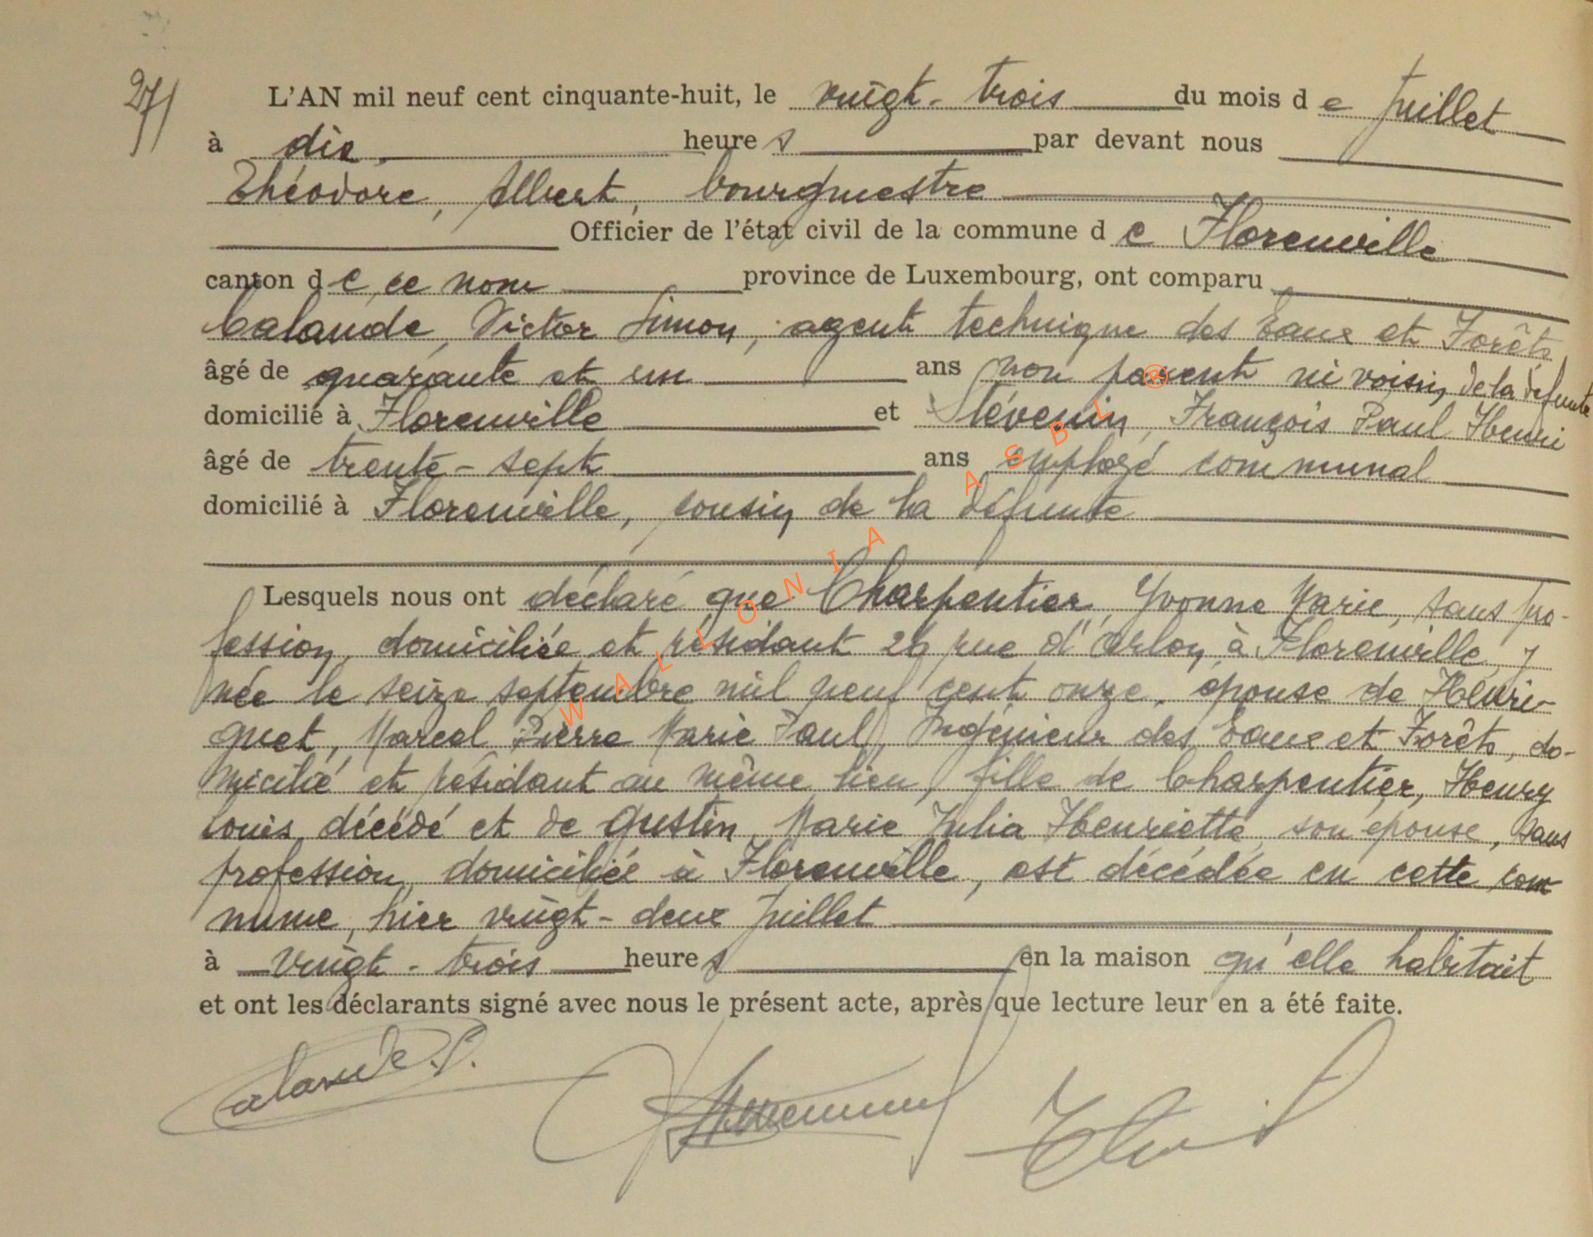 27
L'AN mil neuf cent cinquante-huit, le vingt-trois du mois de Juillet
à dix heures par devant nous
Théodore, Albert, bourgmestre
Officier de l'état civil de la commune de Florenville
canton de ce nom province de Luxembourg, ont comparu
Calande, Victor Simon, agent technique des Eaux et Forêts
âgé de quarante et un ans non parent ni voisin de la défunte
domicilié à Florenville et Stévenin, François Paul Henri
âgé de trente-sept ans employé communal
domicilié à Florenville, cousin de la défunte
Lesquels nous ont déclaré que Charpentier, Yvonne Marie, sans pro-
fession, domiciliée et résidant 26 rue d'Arlon, à Florenville, y
née le seize septembre mil neuf cent onze, épouse de Henri-
quet, Marcel Pierre Marie Paul, Ingénieur des Eaux et Forêts, do-
micilié et résidant au même lieu, fille de Charpentier, Henry
Louis, décédé et de Gustin, Marie Julia Henriette, son épouse, sans
profession, domiciliée à Florenville, est décédée en cette com
mune, hier vingt-deux Juillet
à vingt-trois heures en la maison qu'elle habitait
et ont les déclarants signé avec nous le présent acte, après que lecture leur en a été faite.
Calande.V.
WALLONIA ASBL ®